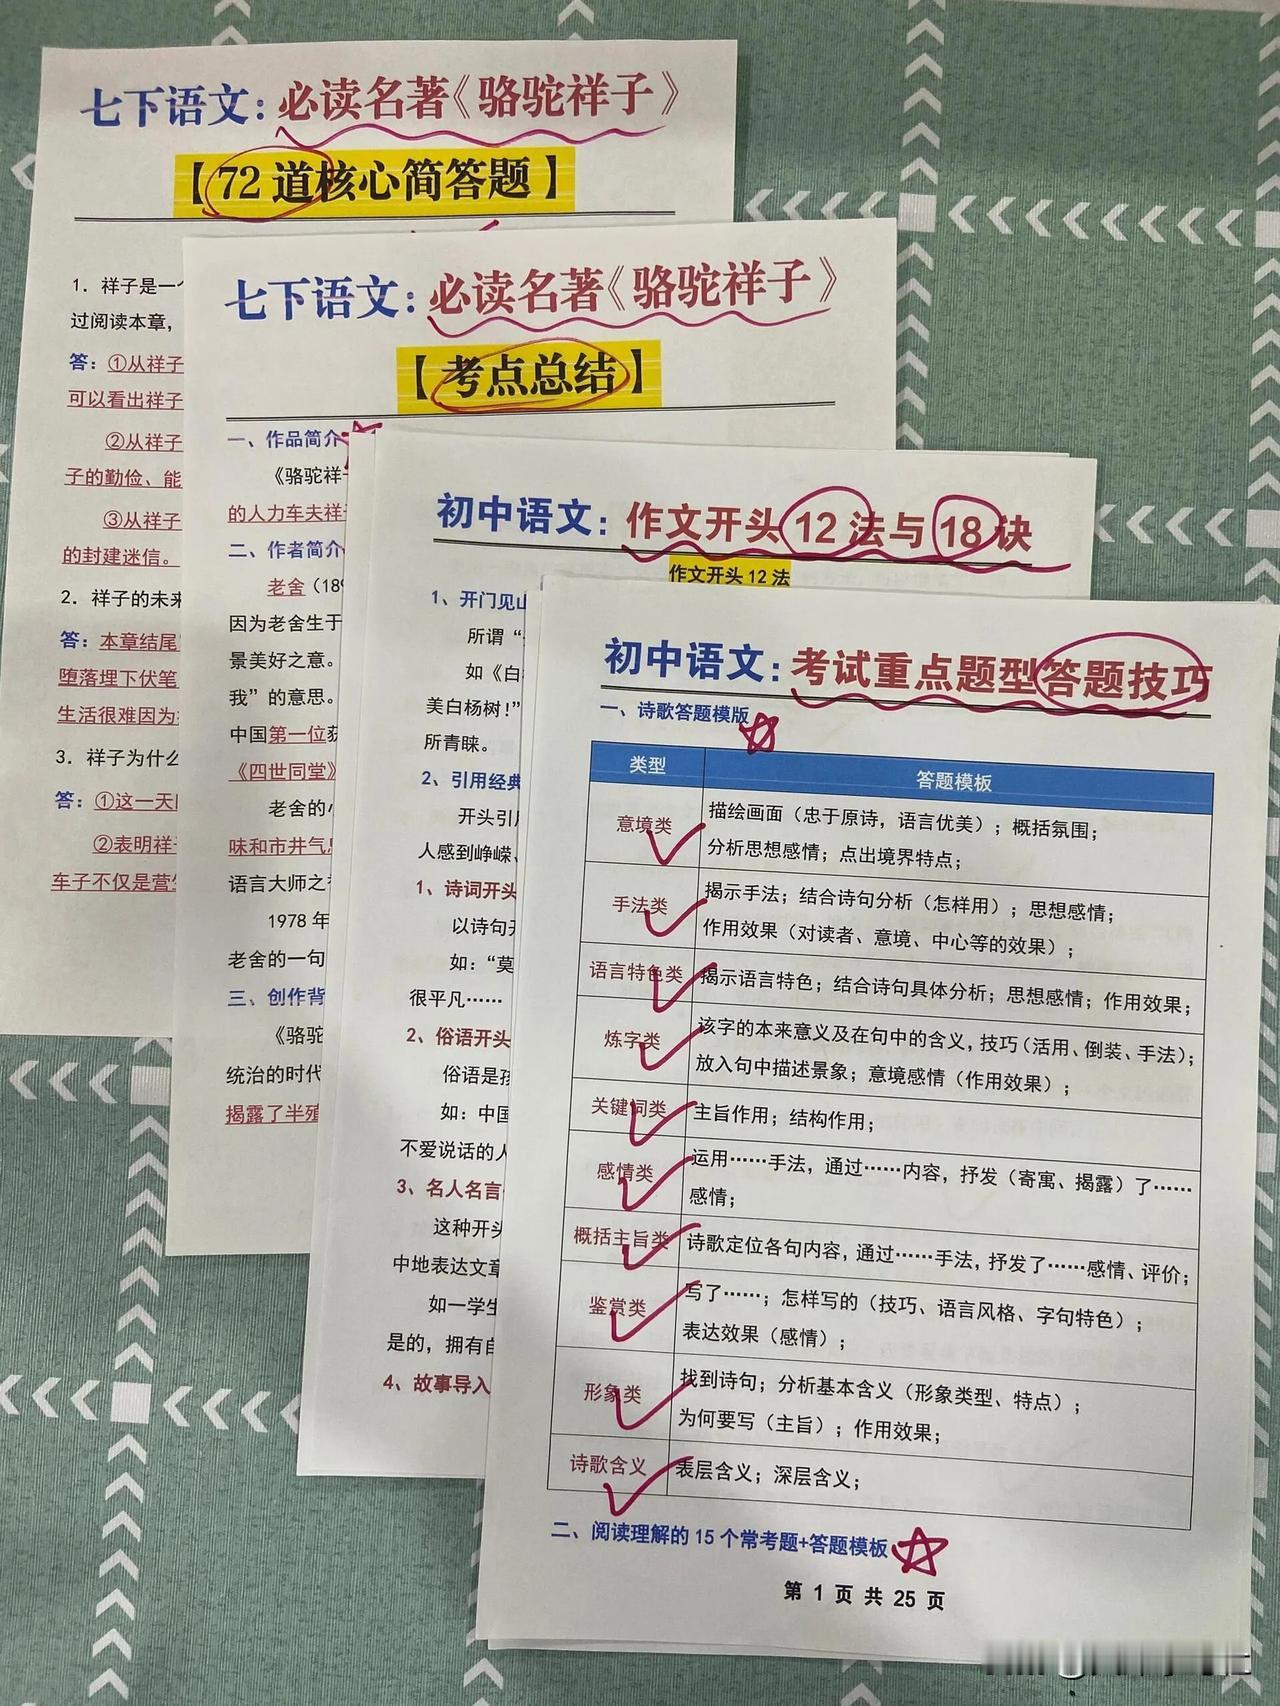 七下语文：必读名著《骆驼祥子》
【72道核心简答题】
1. 祥子是一个
过阅读本章，
答：①从祥子
可以看出祥子
②从祥子
子的勤俭、能
③从祥子
的封建迷信。
2. 祥子的未来
答：本章结尾
堕落埋下伏笔
生活很难因为
3. 祥子为什么
答：①这一天
②表明祥子
车子不仅是营生
七下语文：必读名著《骆驼祥子》
【考点总结】
一、作品简介
《骆驼祥子
的人力车夫祥
二、作者简介
老舍（189
因为老舍生于
景美好之意。
我”的意思。
中国第一位获
《四世同堂》
老舍的小
味和市井气息
语言大师之
1978 年
老舍的一句
三、创作背
《骆驼
统治的时代
揭露了半殖
初中语文：作文开头12法与18诀
作文开头12法
1、开门见山
所谓“
如《白杨
美白杨树！”
所青睐。
2、引用经典
开头引用
人感到峥嵘、
1、诗词开头
以诗句开
如：“莫
很平凡……
2、俗语开头
俗语是
如：中国
不爱说话的人
3、名人名言
这种开头
中地表达文章
如一学生
是的，拥有自
4、故事导入
初中语文：考试重点题型答题技巧
一、诗歌答题模版
类型 答题模板
意境类 描绘画面（忠于原诗，语言优美）；概括氛围；
分析思想感情；点出境界特点；
手法类 揭示手法；结合诗句分析（怎样用）；思想感情；
作用效果（对读者、意境、中心等的效果）；
语言特色类 揭示语言特色；结合诗句具体分析；思想感情；作用效果；
炼字类 该字的本来意义及在句中的含义，技巧（活用、倒装、手法）；
放入句中描述景象；意境感情（作用效果）；
关键词类 主旨作用；结构作用；
感情类 运用……手法，通过……内容，抒发（寄寓、揭露）了……
感情；
概括主旨类 诗歌定位各句内容，通过……手法，抒发了……感情、评价；
鉴赏类 写了……；怎样写的（技巧、语言风格、字句特色）；
表达效果（感情）；
形象类 找到诗句；分析基本含义（形象类型、特点）；
为何要写（主旨）；作用效果；
诗歌含义 表层含义；深层含义；
二、阅读理解的15个常考题+答题模板
第 1 页 共 25 页